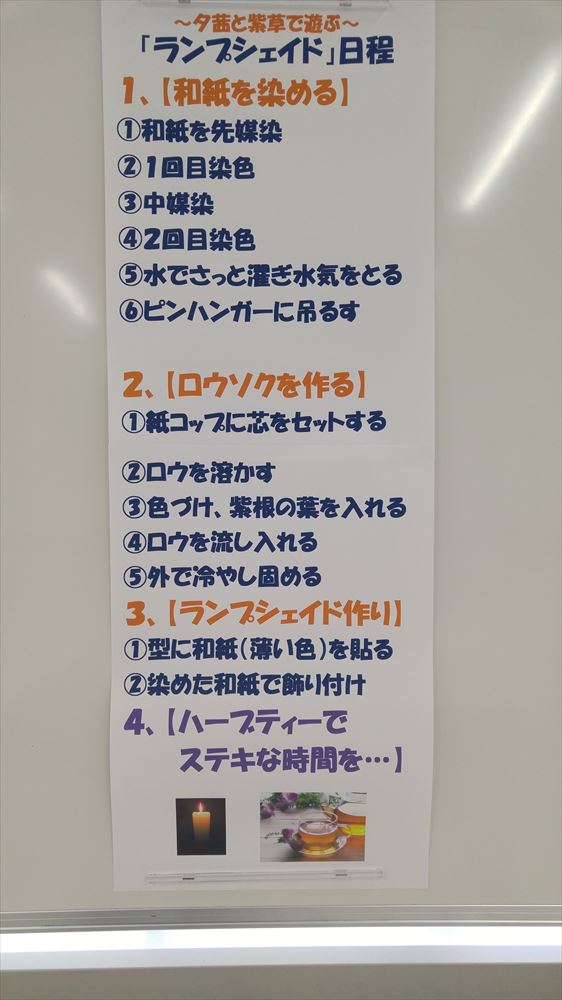 ～夕茜と紫草で遊ぶ～
「ランプシェイド」日程
1、【和紙を染める】
①和紙を先媒染
②1回目染色
③中媒染
④2回目染色
⑤水でさっと濯ぎ水気をとる
⑥ピンハンガーに吊るす
2、【ロウソクを作る】
①紙コップに芯をセットする
②ロウを溶かす
③色づけ、紫根の葉を入れる
④ロウを流し入れる
⑤外で冷やし固める
3、【ランプシェイド作り】
①型に和紙（薄い色）を貼る
②染めた和紙で飾り付け
4、【ハーブティーで
ステキな時間を…】